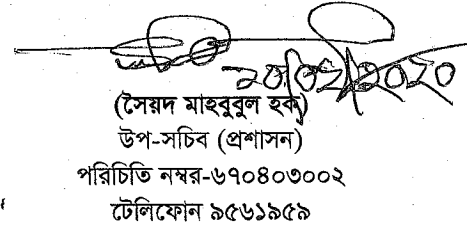 ২০/০২/২০২০
(সৈয়দ মাহবুবুল হক)
উপ-সচিব (প্রশাসন)
পরিচিতি নম্বর-৬৭০৪০৩০০২
টেলিফোন ৯৫৬১৯৫৯